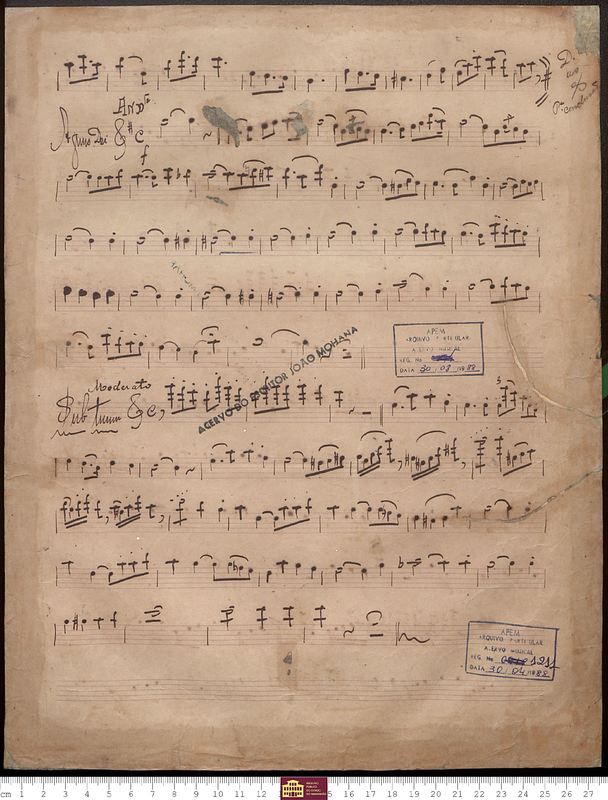 D.
And.te
Agnus Dei
f
APEM
ARQUIVO PARTICULAR
ACERVO MUSICAL
REG. No
DATA 30 / 04 / 1988
ACERVO DO ESCRITOR JOÃO MOHANA
Moderato
Sub tuum
3
APEM
ARQUIVO PARTICULAR
ACERVO MUSICAL
REG. No 1211
DATA 30 / 04 / 1988
cm 1 2 3 4 5 6 7 8 9 10 11 12 15 16 17 18 19 20 21 22 23 24 25 26 27